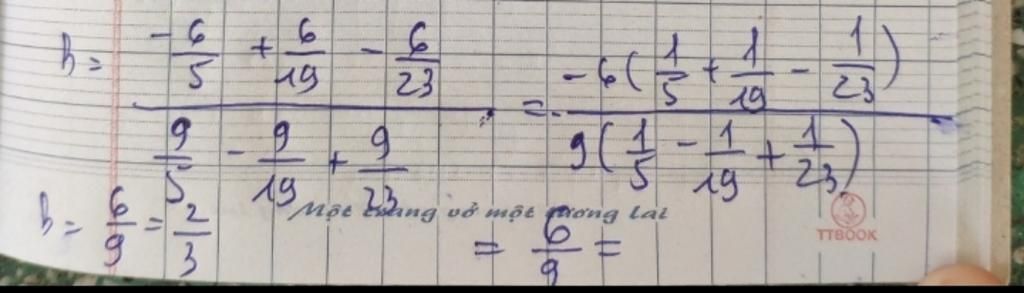 h = (-6/5 + 6/19 - 6/23) / (9/5 - 9/19 + 9/23) = -6(1/5 + 1/19 - 1/23) / 9(1/5 - 1/19 + 1/23)
h = 6/9 = 2/3
Một trang vở một tương lai
= 6/9 =
TTBOOK